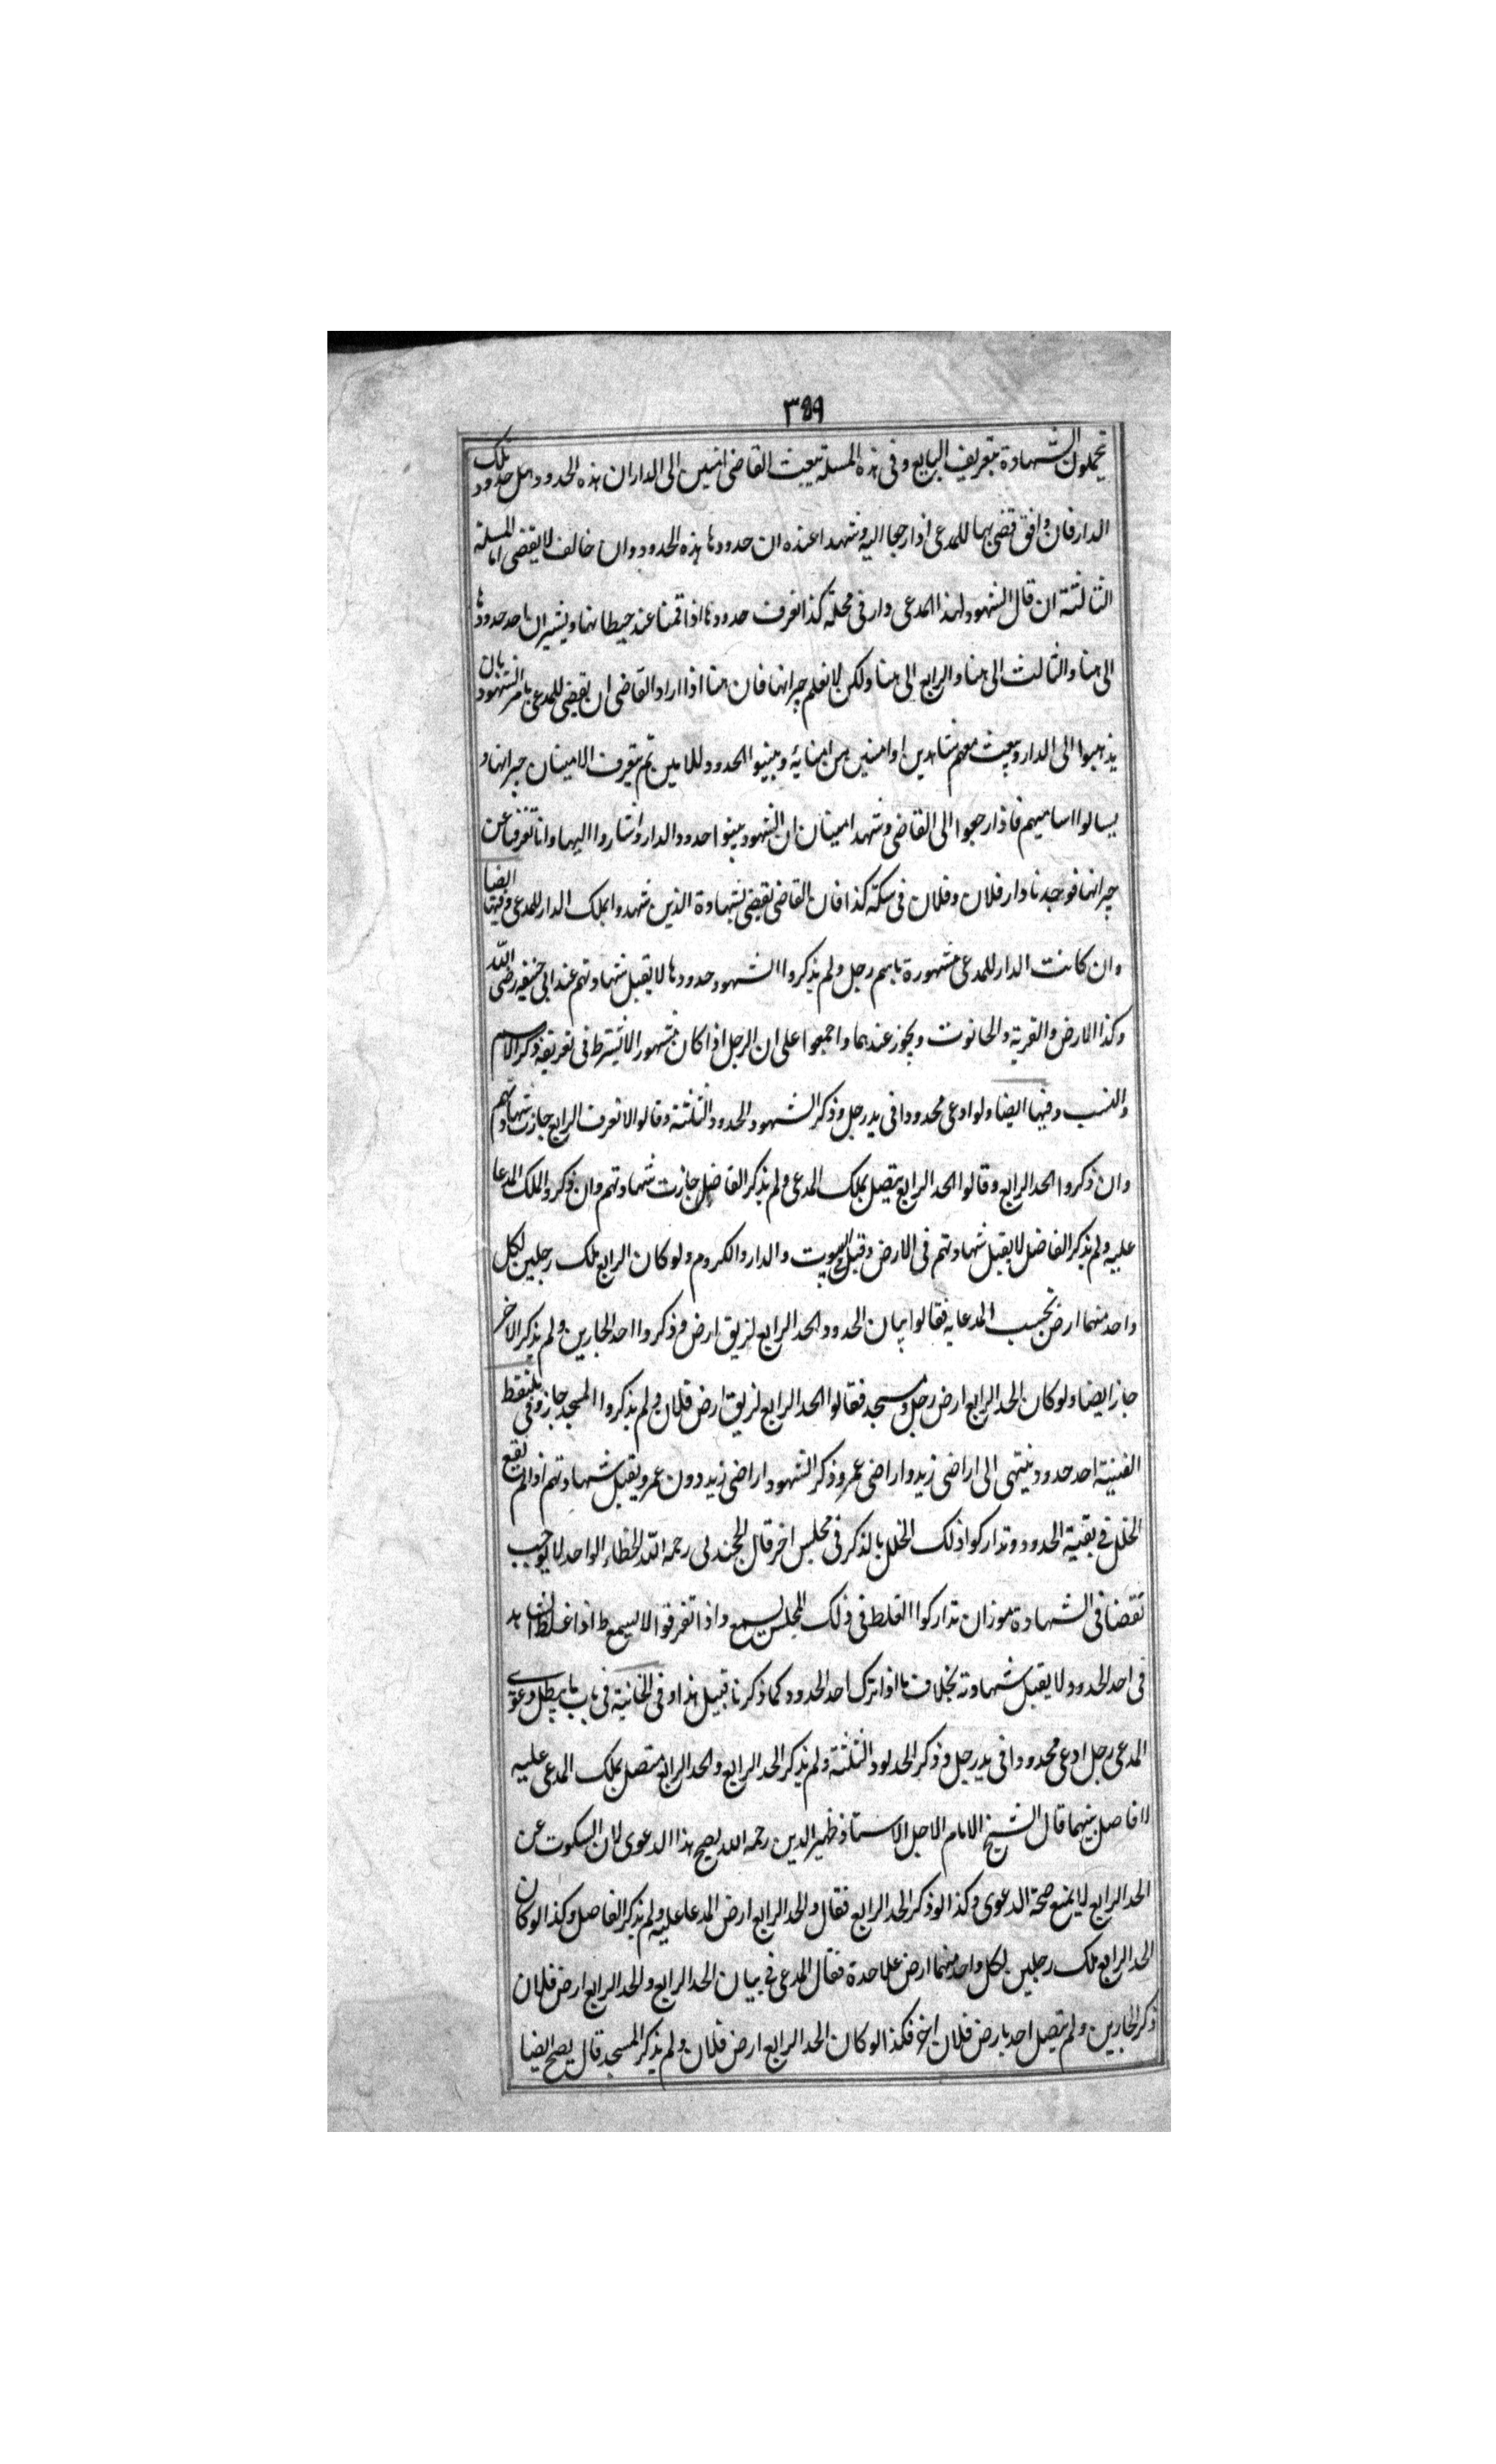 ٣٥٩
يحملون الشهادة بتعريف البايع وفى هذه المسلة يبعث القاضى امنين الى الدار ان هذه الحدود هل حدود تلك
الدار فان وافق قضى بها للمدعى اذا رجعا اليه وشهدا عنده ان حدودها هذه الحدود وان خالف لا يقضى اما المسلة
الثالثة ان قال الشهود لهذا المدعى دار فى محلة كذا نعرف حدودها اذا قمنا عند حيطانها ويشيران باحد حدودها
الى هنا والثالث الى هنا والرابع الى هنا ولكن لا نعلم جيرانها فان هنا اذا اراد القاضى ان يقضى للمدعى يامر الشهود بان
يذهبوا الى الدار ويبعث معهم شاهدين او امنين من امنايه ويبينوا الحدود للامين ثم يتعرف الامينان جيرانها و
يسالوا اساميهم فاذا رجعوا الى القاضى وشهد امينان ان الشهود بينوا حدود الدار واشاروا اليها وانا تعرفنا عن
جيرانها فوجدنا دار فلان وفلان فى سكة كذا فان القاضى يقضى بشهادة الذين شهدوا بملك الدار للمدعى وفيها ايضا
وان كانت الدار للمدعى مشهورة باسم رجل ولم يذكروا الشهود حدودها لا يقبل شهادتهم عند ابى حنيفه رضى الله
وكذا الارض والقرية والحانوت ويجوز عندهما واجمعوا على ان الرجل اذا كان مشهورا لا يشترط فى تعريفه ذكر الاسم
والنسب وفيها ايضا ولو ادعى محدودا فى يد رجل وذكر الشهود الحدود الثلثة وقالوا لا نعرف الرابع جازت شهادتهم
وان ذكروا الحد الرابع وقالوا الحد الرابع يتصل بملك المدعى ولم يذكر الفاصل جازت شهادتهم وان ذكروا الملك المدعا
عليه ولم يذكر الفاصل لا يقبل شهادتهم فى الارض وقبل فى البيوت والدار والكروم ولو كان الرابع ملك رجلين لكل
واحد منهما ارض بحسب المدعا به فقالوا بيان الحدود الحد الرابع لزيق ارض وذكروا احد الجارين ولم يذكر الاخر
جاز ايضا ولو كان الحد الرابع ارض رجل ومسجد فقالوا الحد الرابع لزيق ارض فلان ولم يذكروا المسجد جاز وفى ملتقط
القنية احد حدود ينتهى الى اراضى زيد واراضى عمرو ذكر الشهود اراضى زيد دون عمرو يقبل شهادتهم اذا لم يقع
الخلل فى بقية الحدود وتداركوا ذلك الخلل بالذكر فى مجلس اخر قال الخجندى رحمه الله الخطاء الواحد لا يوجب
نقضا فى الشهادة موزان تداركوا الغلط فى ذلك المجلس يسمع واذا تفرقوا لا يسمع ط اذا غلط الشاهد
فى احد الحدود لا يقبل شهادته بخلاف ما اذا ترك احد الحدود كما ذكرنا قبيل هذا وفى الخانية فى باب ما يبطل دعوى
المدعى رجل ادعى محدودا فى يد رجل وذكر الحدود الثلثة ولم يذكر الحد الرابع والحد الرابع متصل بملك المدعى عليه
لا فاصل بينهما قال الشيخ الامام الاجل الاستاذ ظهير الدين رحمه الله يصح هذا الدعوى لان السكوت عن
الحد الرابع لا يمنع صحة الدعوى وكذا لو ذكر الحد الرابع فقال والحد الرابع ارض المدعا عليه ولم يذكر الفاصل وكذا لو كان
الحد الرابع ملك رجلين لكل واحد منهما ارض علىحدة فقال المدعى فى بيان الحد الرابع والحد الرابع ارض فلان
ذكر الجارين ولم يتصل احد بارض فلان اخر فكذا لو كان الحد الرابع ارض فلان ولم يذكر المسجد قال يصح ايضا